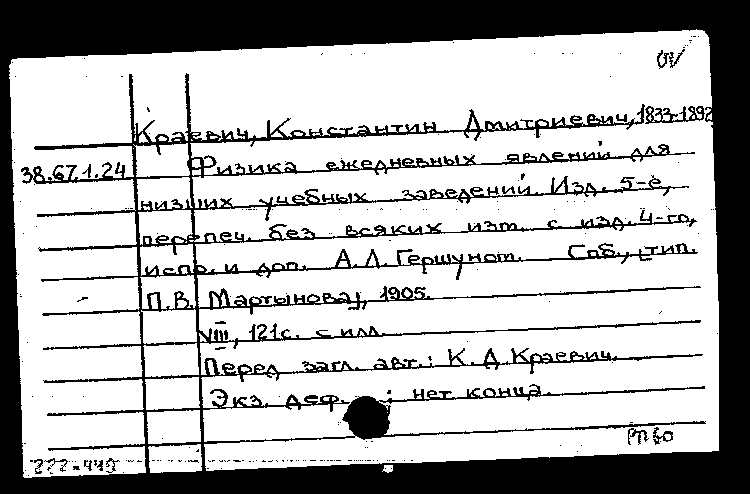 Краевич, Константин Дмитриевич, 1833-1892
38.67.1.24 Физика ежедневных явлений для
низших учебных заведений. Изд. 5-е,
перепеч. без всяких изм. с изд. 4-го,
испр. и доп. А.Л. Гершуном. Спб., [тип.
П.В. Мартынова], 1905.
VIII, 121с. с илл.
Перед загл. авт.: К.Д Краевич.
Экз. деф.: нет конца.
РП 60
222-440